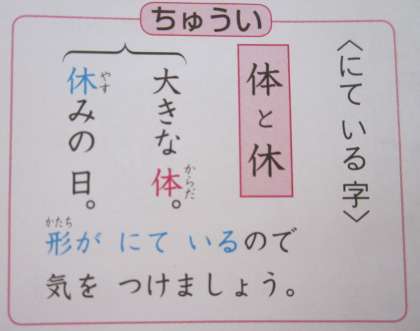 ちゅうい
〈にて いる 字〉
体と休
大きな 体。
からだ
休みの 日。
やす
形が にて いるので
かたち
気を つけましょう。